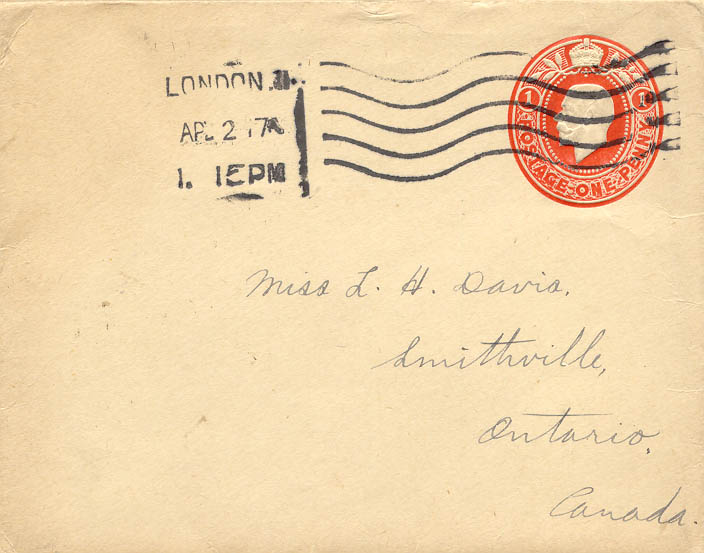 LONDON.
APL 2 17
1. 15 PM
1 1
POSTAGE·ONE·PENNY
Miss L. H. Davis.
Smithville,
Ontario,
Canada.